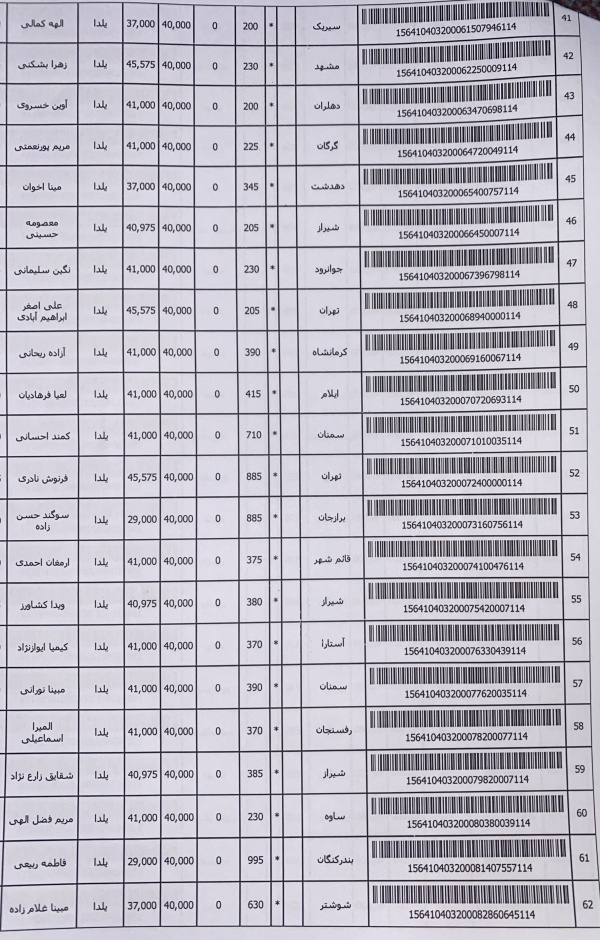 41 156410403200061507946114 سیریک * 200 0 40,000 37,000 یلدا الهه کمالی
42 156410403200062250009114 مشهد * 230 0 40,000 45,575 یلدا زهرا بشکنی
43 156410403200063470698114 دهلران * 200 0 40,000 41,000 یلدا آوین خسروی
44 156410403200064720049114 گرگان * 225 0 40,000 41,000 یلدا مریم پورنعمتی
45 156410403200065400757114 دهدشت * 345 0 40,000 37,000 یلدا مینا اخوان
46 156410403200066450007114 شیراز * 205 0 40,000 40,975 یلدا معصومه
حسینی
47 156410403200067396798114 جوانرود * 230 0 40,000 41,000 یلدا نگین سلیمانی
48 156410403200068940000114 تهران * 205 0 40,000 45,575 یلدا علی اصغر
ابراهیم آبادی
49 156410403200069160067114 کرمانشاه * 390 0 40,000 41,000 یلدا آزاده ریحانی
50 156410403200070720693114 ایلام * 415 0 40,000 41,000 یلدا لعیا فرهادیان
51 156410403200071010035114 سمنان * 710 0 40,000 41,000 یلدا کمند احسانی
52 156410403200072400000114 تهران * 885 0 40,000 45,575 یلدا فرنوش نادری
53 156410403200073160756114 برازجان * 885 0 40,000 29,000 یلدا سوگند حسن
زاده
54 156410403200074100476114 قائم شهر * 375 0 40,000 41,000 یلدا ارمغان احمدی
55 156410403200075420007114 شیراز * 380 0 40,000 40,975 یلدا ویدا کشاورز
56 156410403200076330439114 آستارا * 370 0 40,000 41,000 یلدا کیمیا ایوازنژاد
57 156410403200077620035114 سمنان * 390 0 40,000 41,000 یلدا مبینا نورانی
58 156410403200078200077114 رفسنجان * 370 0 40,000 41,000 یلدا المیرا
اسماعیلی
59 156410403200079820007114 شیراز * 385 0 40,000 40,975 یلدا شقایق زارع نژاد
60 156410403200080380039114 ساوه * 230 0 40,000 41,000 یلدا مریم فضل الهی
61 156410403200081407557114 بندرکنگان * 995 0 40,000 29,000 یلدا فاطمه ربیعی
62 156410403200082860645114 شوشتر * 630 0 40,000 37,000 یلدا مبینا غلام زاده